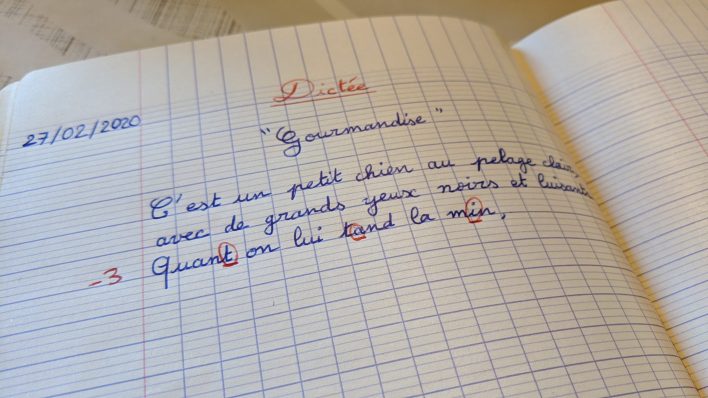 Dictée
27/02/2020
"Gourmandise"
C'est un petit chien au pelage clair,
avec de grands yeux noirs et luisants
-3 Quant on lui tand la min,